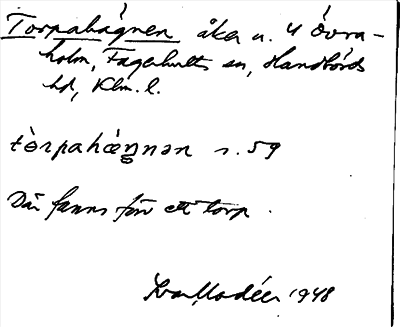 Torpahägnen åker u. 4 Övra-
holm, Fagerhults sn, Handbörds
hd, Klm. l.
tòrpahæ̀ŋnən s. 59
Där fanns förr ett torp.
Ivar Modéer 1948